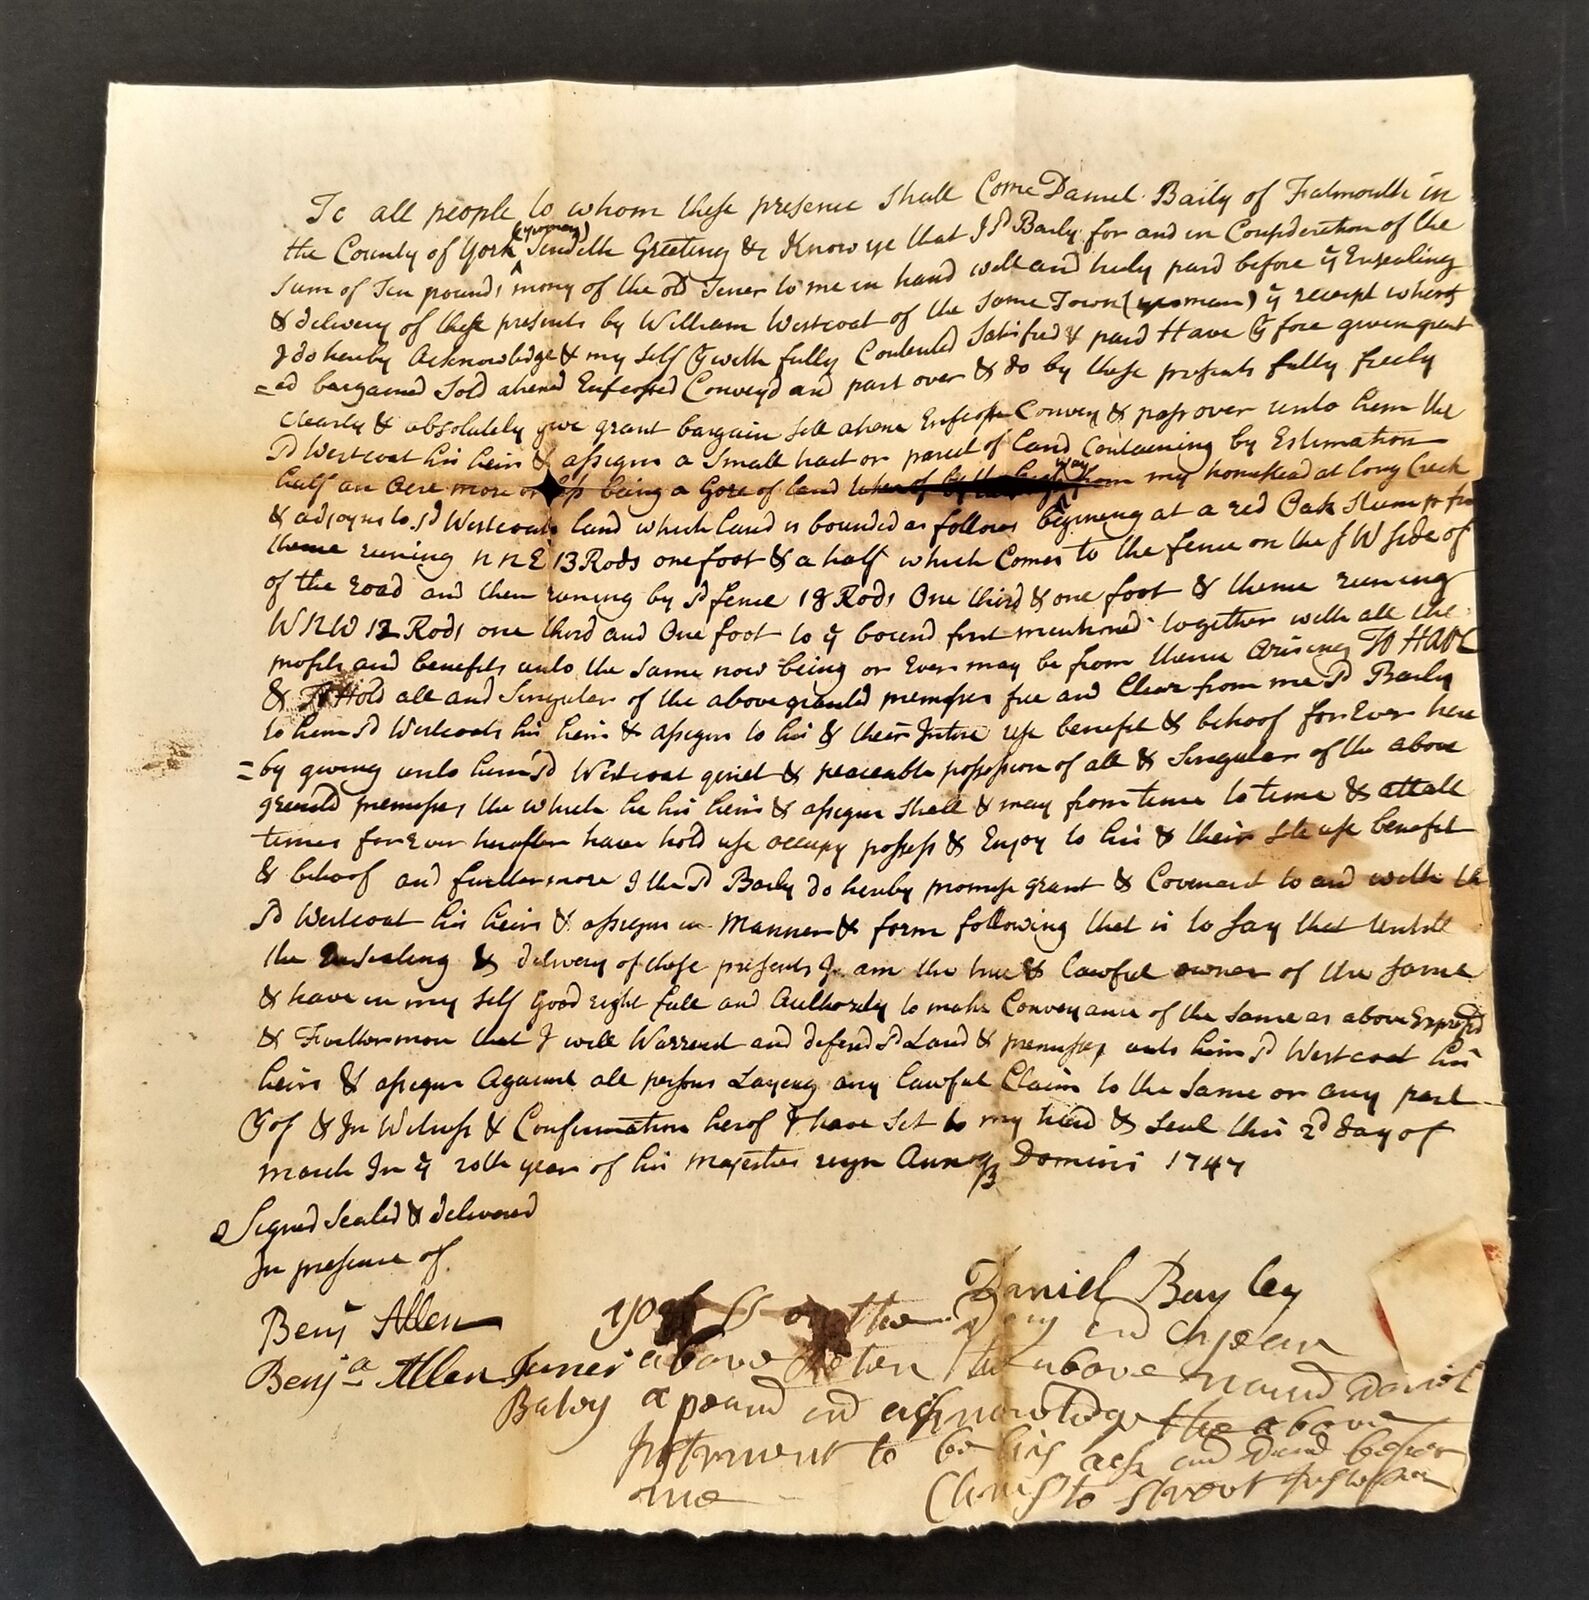 To all people to whom these presence shall Come Daniel Baily of Falmouth in
(yeoman)
the County of York Sendeth Greeting &c Know ye that I sd Baily for and in Consideration of the
Sum of Ten pounds mony of the old Tener to me in hand well and truly paid before ye Ensealing
& delivery of these presents by William Westcoat of the same Town (yeoman) ye receipt whereof
I do hereby Acknowledge & my self therewith fully Contented Satisfied & paid Have therefore given grant
=ed bargained Sold aliened Enfeoffed Conveyd and past over & do by these presents fully freely
Clearly & absolutely give grant bargain sell aliene Enfeoffe Convey & pass over unto him the
sd Westcoat his heirs & assigns a Small tract or parcel of land Containing by Estimation
half an Acre more or less being a Gore of land way from my homestead at long Creek
& adjoyns to sd Westcoats land which land is bounded as follows begining at a red Oak Stump fr
thence runing NNE 13 Rods one foot & a half which Comes to the fence on the SW side of
of the road and then runing by sd fence 18 Rods One third & one foot & thence runing
WNW 12 Rods one third and One foot to ye bound first mentioned together with all the
profits and benefits unto the same now being or Ever may be from thence arising TO HAVE
& To Hold all and Singular of the above granted premises free and Clear from me sd Baily
to him sd Westcoats his heirs & assigns to his & their future use benefit & behoof for Ever here
=by giving unto him sd Westcoat quiet & peaceable possession of all & Singular of the above
granted premises, the which he his heirs & assigns shall & may from time to time & att all
times for Ever hereafter have hold use occupy possess & Enjoy to his & their use benefit
& behoof and furthermore I the sd Baily do hereby promise grant & Covenant to and with the
sd Westcoat his heirs & assigns in Manner & form following that is to say that Untill
the Ensealing & delivery of these presents I am the true & lawful owner of the same
& have in my self Good right full and Authority to make Conveyance of the same as above Expressd
& Furthermore that I will Warrant and defend sd Land & premises unto him sd Westcoat his
heirs & assigns Against all persons Laying any lawful Claim to the same or any part
thereof & In Witness & Confirmation herof I have Set to my hand & Seal this 2d day of
march In ye 20th year of his majesties reign Annoq Domini 1747
Signed Sealed & delivered
In presence of
Daniel Bayley
Benj Allen
Benja Allen Juner
York ss on the Day and
above the above Daniel
Baley apeard and acknowledge the above
Instrument to be his act and Deed befor
me Christo Strout